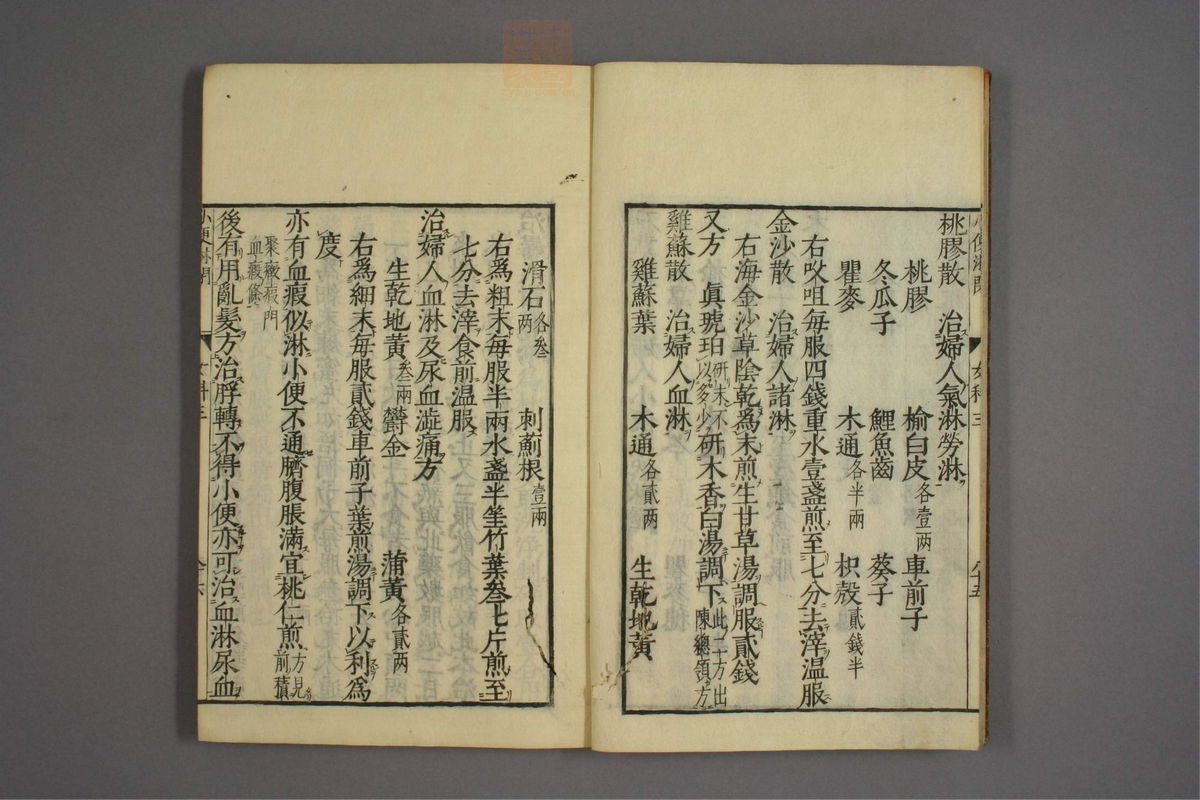 桃膠散　治婦人氣淋勞淋
桃膠　榆白皮各壹兩　車前子
冬瓜子　鯉魚齒　葵子
瞿麥　木通各半兩　枳殼貳錢半
右㕮咀每服四錢重水壹盞煎至七分去滓溫服
金沙散　治婦人諸淋
右海金沙草陰乾爲末煎生甘草湯調服貳錢
又方　眞琥珀研末不以多少研木香白湯調下此二十方出陳總領方
雞蘇散　治婦人血淋
雞蘇葉　木通各貳兩　生乾地黃
滑石各叁兩　刺薊根壹兩
右爲粗末每服半兩水盞半筀竹葉叁七片煎至
七分去滓食前温服
治婦人血淋及尿血澁痛方
生乾地黃叁兩　鬱金　蒲黃各貳兩
右爲細末每服貳錢車前子葉煎湯調下以利爲
度
亦有血瘕似淋小便不通臍腹脹滿宜桃仁煎方見前積
聚癥瘕門血瘕條
後有用亂髮方治脬轉不得小便亦可治血淋尿血
女科三